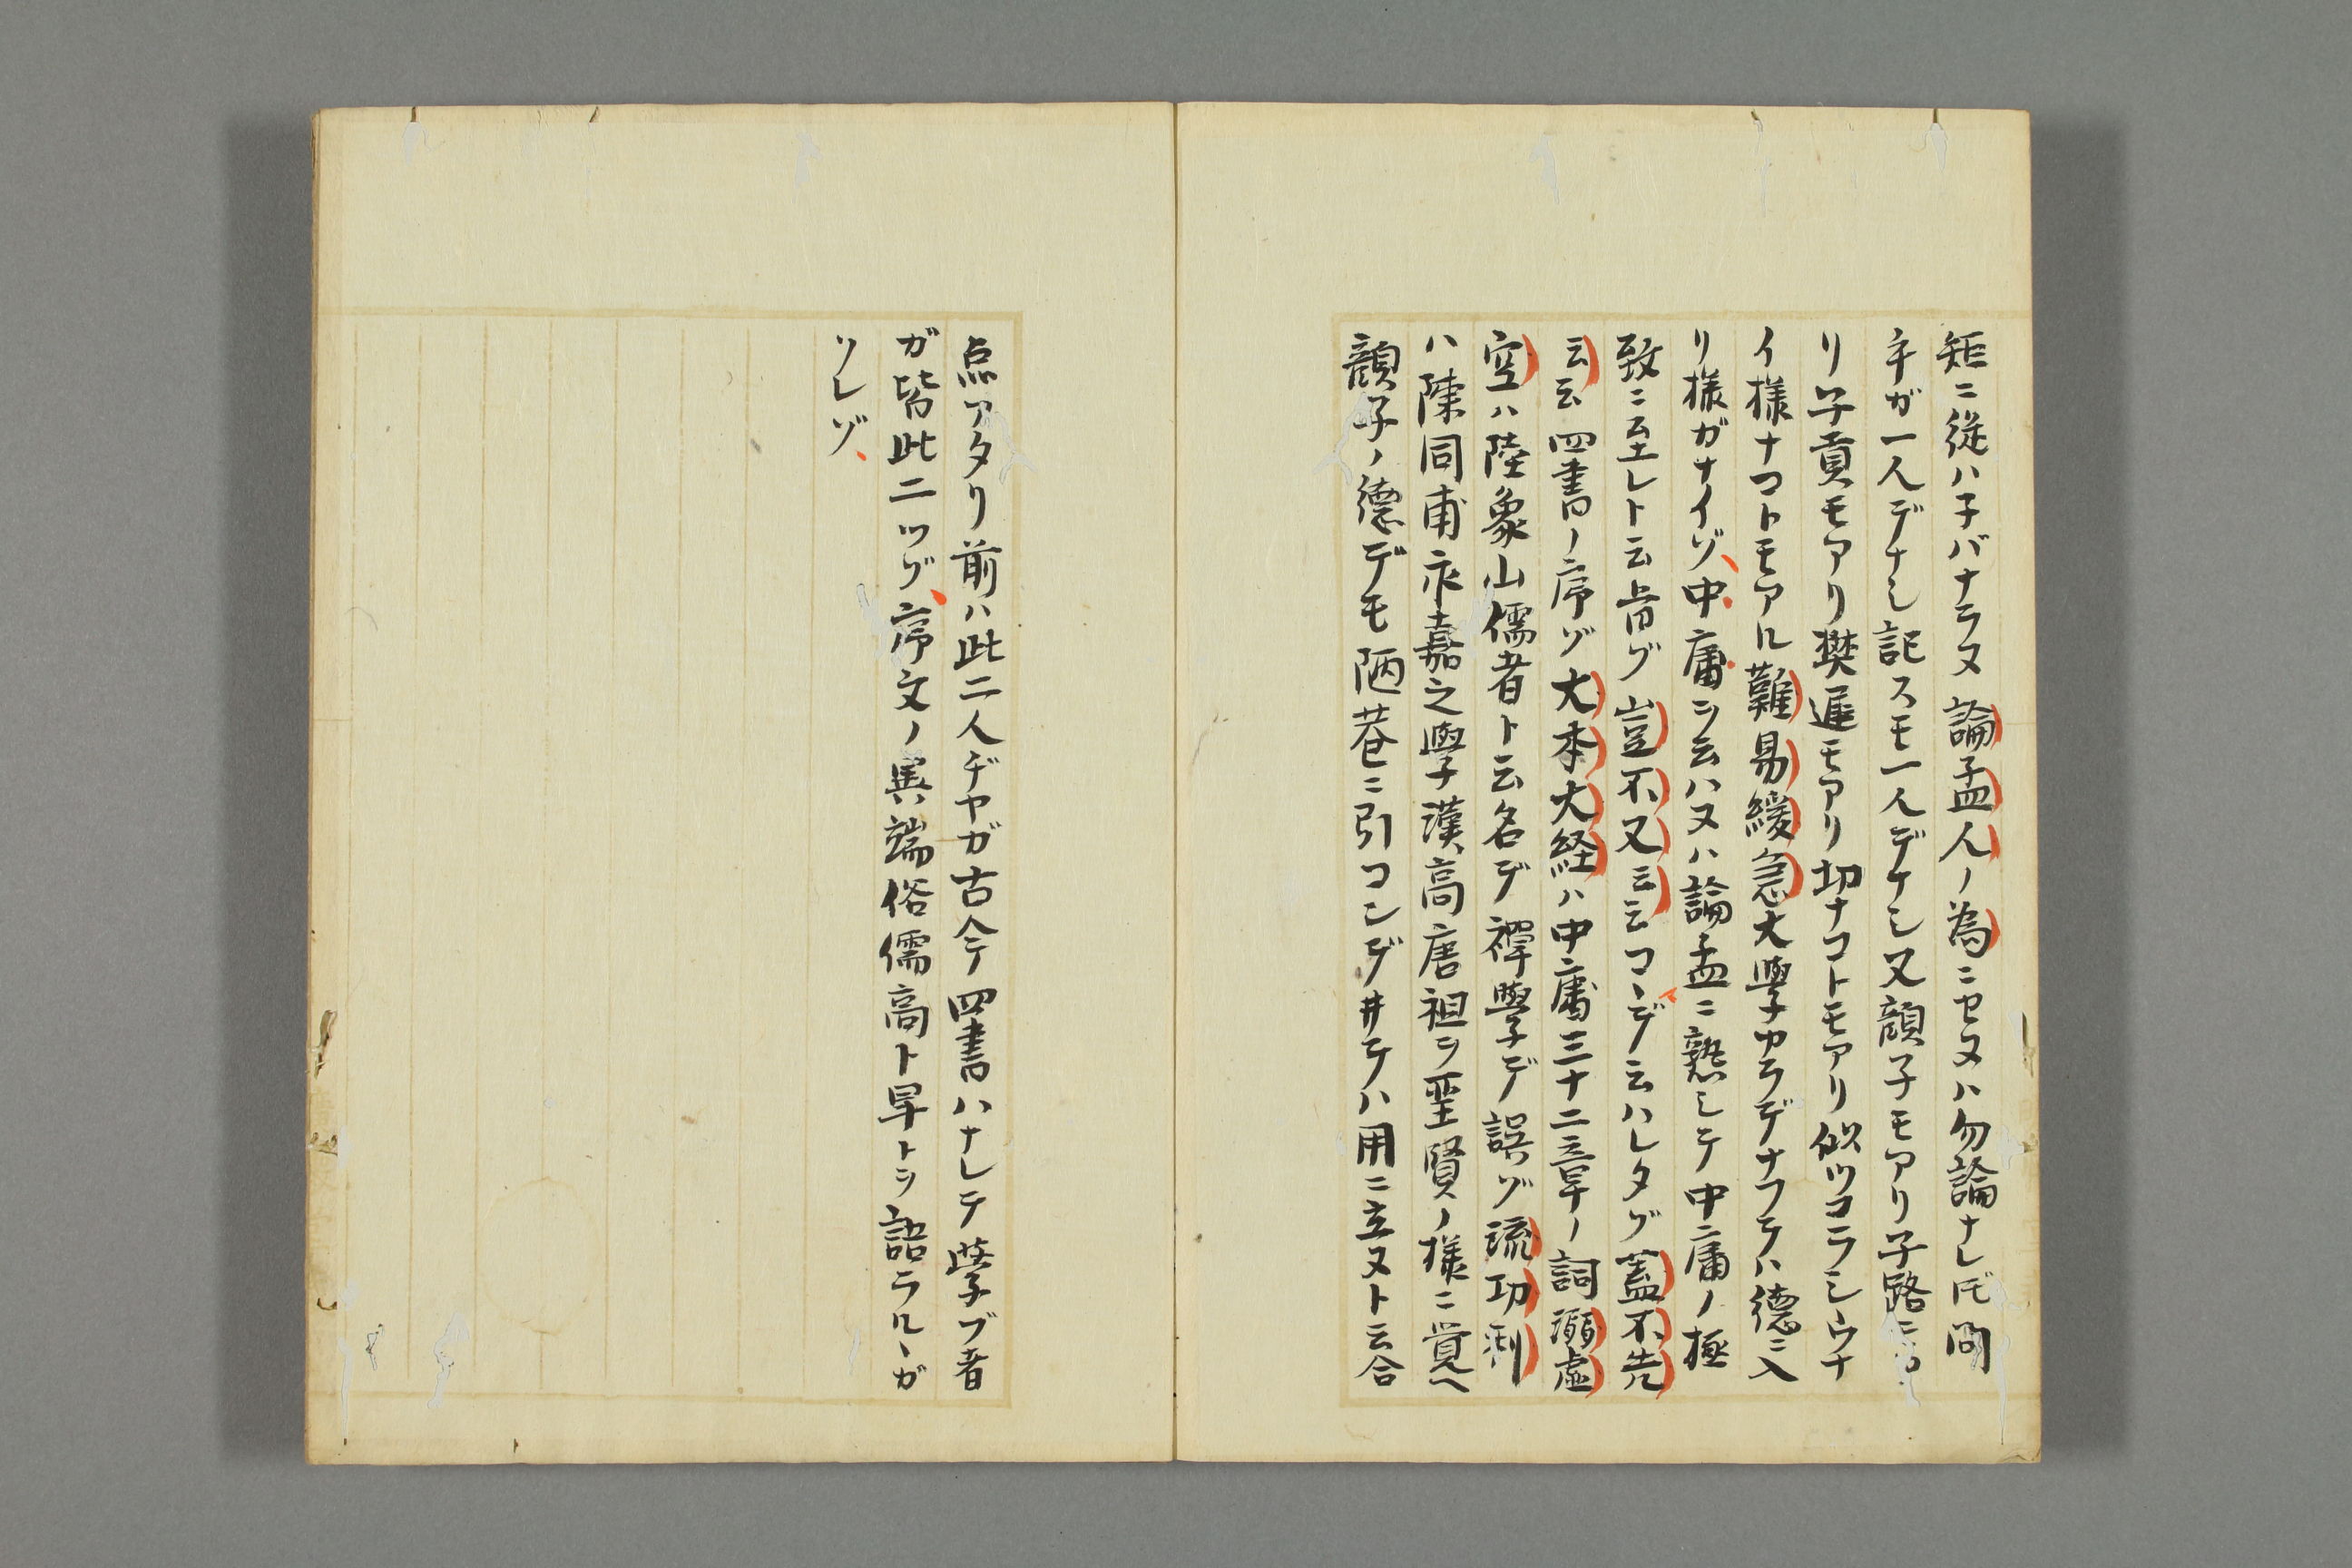 矩ニ從ハ子バナラヌ論孟人ノ為ニセヌハ勿論ナレ𪜈問
手ガ一人デナシ記スモ一人デナシ又顔子モアリ子路モア
リ子貢モアリ樊遲モアリ切ナコトモアリ似ツコラシウナ
イ様ナコトモアル難易緩急大學カラデナフテハ德ニ入
リ様ガナイゾ中庸ヲ云ハヌハ論孟ニ熟シテ中庸ノ極
致ニ至レト云旨ゾ豈不又云云マデデ云ハレタゾ蓋不先
云云四書ノ序ゾ大本大経ハ中庸三十二章ノ詞溺虚
空ハ陸象山儒者ト云名デ禪學デ誤ゾ流功利
ハ陳同甫永嘉之學漢高唐祖ヲ聖賢ノ様ニ覚ヘ
顔子ノ德デモ陋巷ニ引コンデ井テハ用ニ立ヌト云合
点アタリ前ハ此二人ヂヤガ古今四書ハナレテ學ブ者
ガ皆此二ツゾ序文ノ異端俗儒高ト卑トヲ語ラルヽガ
ソレゾ